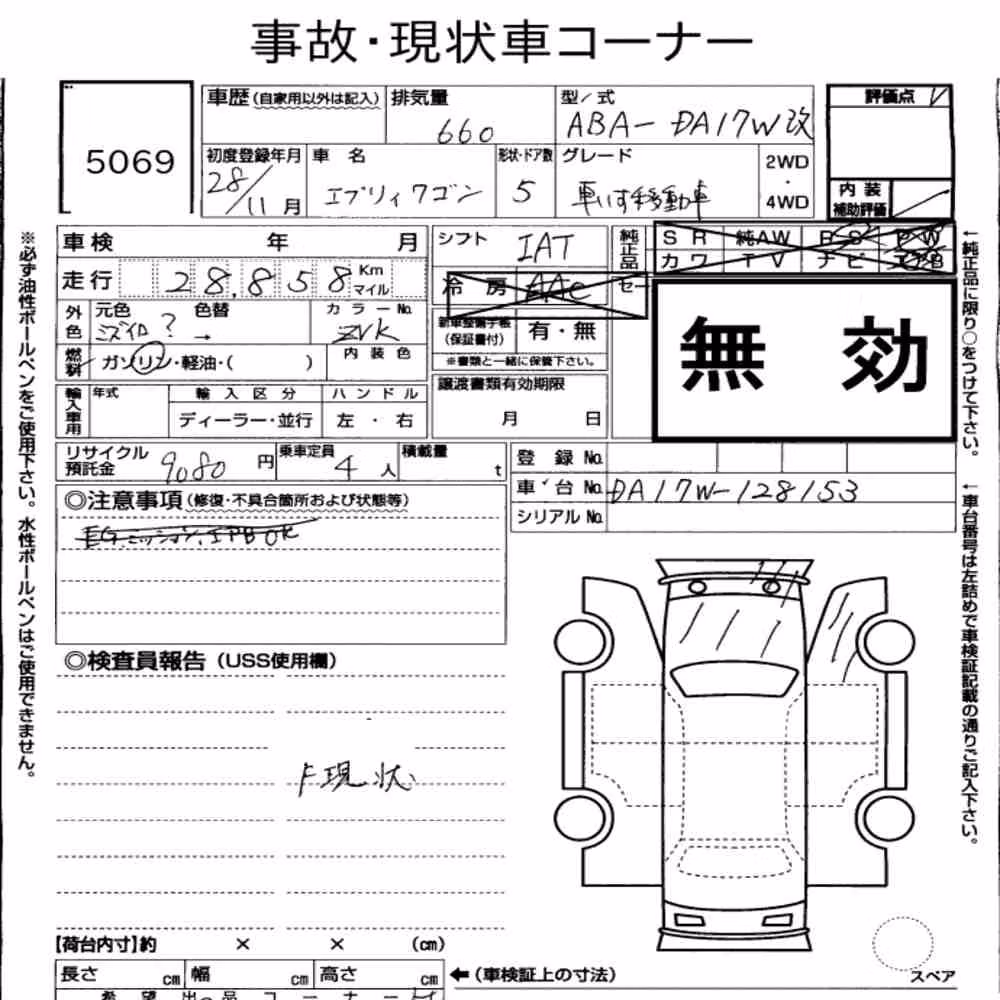 事故・現状車コーナー
5069
車歴(自家用以外は記入)
排気量
660
型／式
ABA-DA17W改
評価点
初度登録年月
28/11月
車名
エブリィワゴン
形状・ドア数
5
グレード
車いす移動車
2WD
・
4WD
内装
補助評価
車検 年 月
シフト
IAT
純正品
SR 純AW PS PW
カワ TV ナビ エアB
走行 28,858 Km
マイル
冷房 AAC
セー
無効
外色
元色
ミズイロ?
色替
→
カラーNo.
ZVK
新車整備手帳
(保証書付)
有・無
※書類と一緒に保管下さい。
燃料
ガソリン・軽油・( )
内装色
輸入車用
年式
輸入区分
ディーラー・並行
ハンドル
左・右
譲渡書類有効期限
月 日
リサイクル
預託金
9080円
乗車定員
4人
積載量
t
登録No.
車台No.
DA17W-128153
シリアルNo.
◎注意事項(修復・不具合箇所および状態等)
EGミッション,エアBOK
◎検査員報告(USS使用欄)
F現状
【荷台内寸】約 × × (cm)
長さ cm
幅 cm
高さ cm
←(車検証上の寸法)
スペア
希望出品コーナー
※必ず油性ボールペンをご使用下さい。水性ボールペンはご使用できません。
←純正品に限り○をつけて下さい。
←車台番号は左詰めで車検証記載の通りご記入下さい。